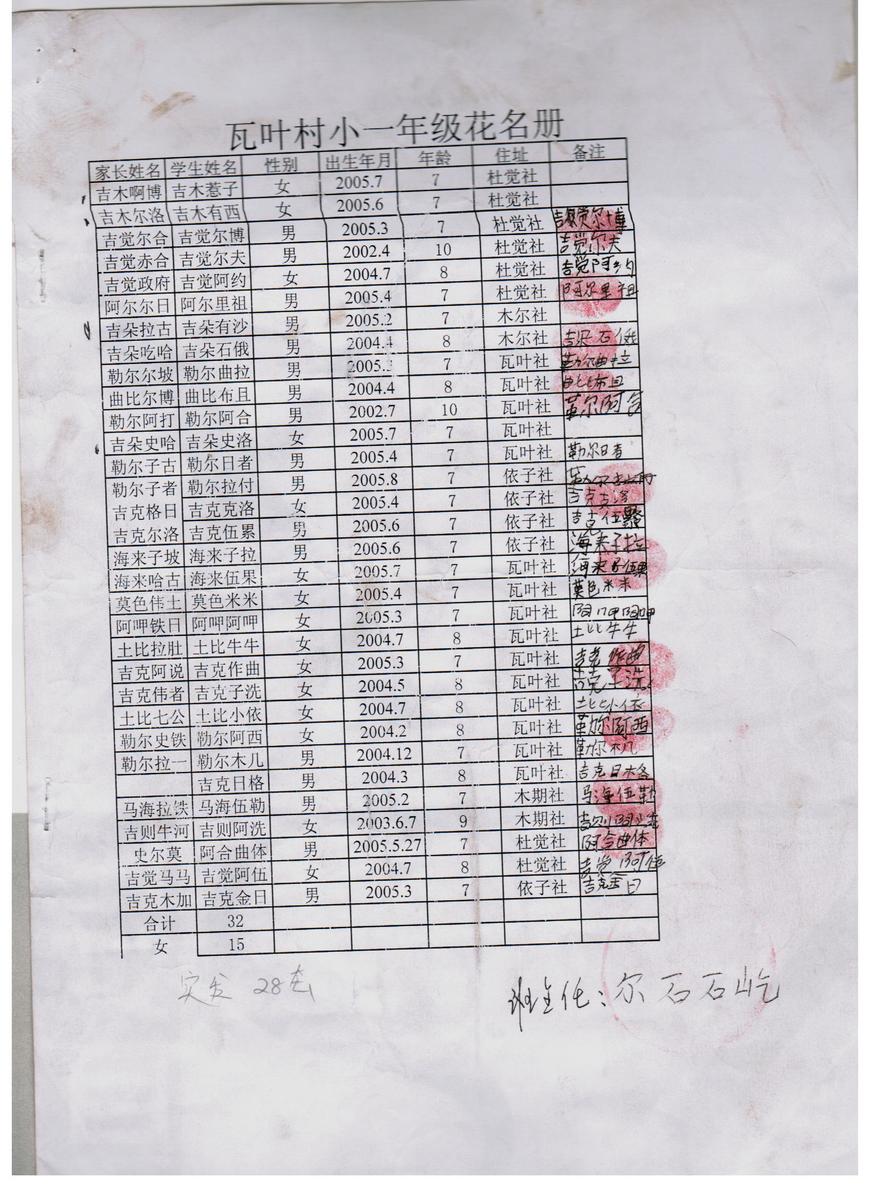 瓦叶村小一年级花名册
家长姓名 学生姓名 性别 出生年月 年龄 住址 备注
吉木啊博 吉木惹子 女 2005.7 7 杜觉社
吉木尔洛 吉木有西 女 2005.6 7 杜觉社
吉觉尔合 吉觉尔博 男 2005.3 7 杜觉社 吉觉尔博
吉觉赤合 吉觉尔夫 男 2002.4 10 杜觉社 吉觉尔夫
吉觉政府 吉觉阿约 女 2004.7 8 杜觉社 吉觉阿约
阿尔尔日 阿尔里祖 男 2005.4 7 杜觉社 阿尔里祖
吉朵拉古 吉朵有沙 男 2005.2 7 木尔社
吉朵吃哈 吉朵石俄 男 2004.4 8 木尔社 吉朵石俄
勒尔尔坡 勒尔曲拉 男 2005.3 7 瓦叶社 勒尔曲拉
曲比尔博 曲比布且 男 2004.4 8 瓦叶社 曲比布且
勒尔阿打 勒尔阿合 男 2002.7 10 瓦叶社 勒尔阿合
吉朵史哈 吉朵史洛 女 2005.7 7 瓦叶社
勒尔子古 勒尔日者 男 2005.4 7 瓦叶社 勒尔日者
勒尔子者 勒尔拉付 男 2005.8 7 依子社
吉克格日 吉克克洛 女 2005.4 7 依子社 吉克克洛
吉克尔洛 吉克伍累 男 2005.6 7 依子社 吉克伍
海来子坡 海来子拉 男 2005.6 7 依子社 海来子拉
海来哈古 海来伍果 女 2005.7 7 瓦叶社 海来伍果
莫色伟土 莫色米米 女 2005.4 7 瓦叶社 莫色米米
阿呷铁日 阿呷阿呷 女 2005.3 7 瓦叶社 阿呷阿呷
土比拉肚 土比牛牛 女 2004.7 8 瓦叶社 土比牛牛
吉克阿说 吉克作曲 女 2005.3 7 瓦叶社 吉克作曲
吉克伟者 吉克子洗 女 2004.5 8 瓦叶社 吉克子洗
土比七公 土比小依 女 2004.7 8 瓦叶社 土比小依
勒尔史铁 勒尔阿西 女 2004.2 8 瓦叶社 勒尔阿西
勒尔拉一 勒尔木几 男 2004.12 7 瓦叶社 勒尔木几
吉克日格 男 2004.3 8 瓦叶社 吉克日格
马海拉铁 马海伍勒 男 2005.2 7 木期社 马海伍勒
吉则牛河 吉则阿洗 女 2003.6.7 9 木期社 吉则阿洗
史尔莫 阿合曲体 男 2005.5.27 7 杜觉社 阿合曲体
吉觉马马 吉觉阿伍 女 2004.7 8 杜觉社 吉觉阿伍
吉克木加 吉克金日 男 2005.3 7 依子社 吉克金日
合计 32
女 15
实发 28套
班主任：尔石石屹